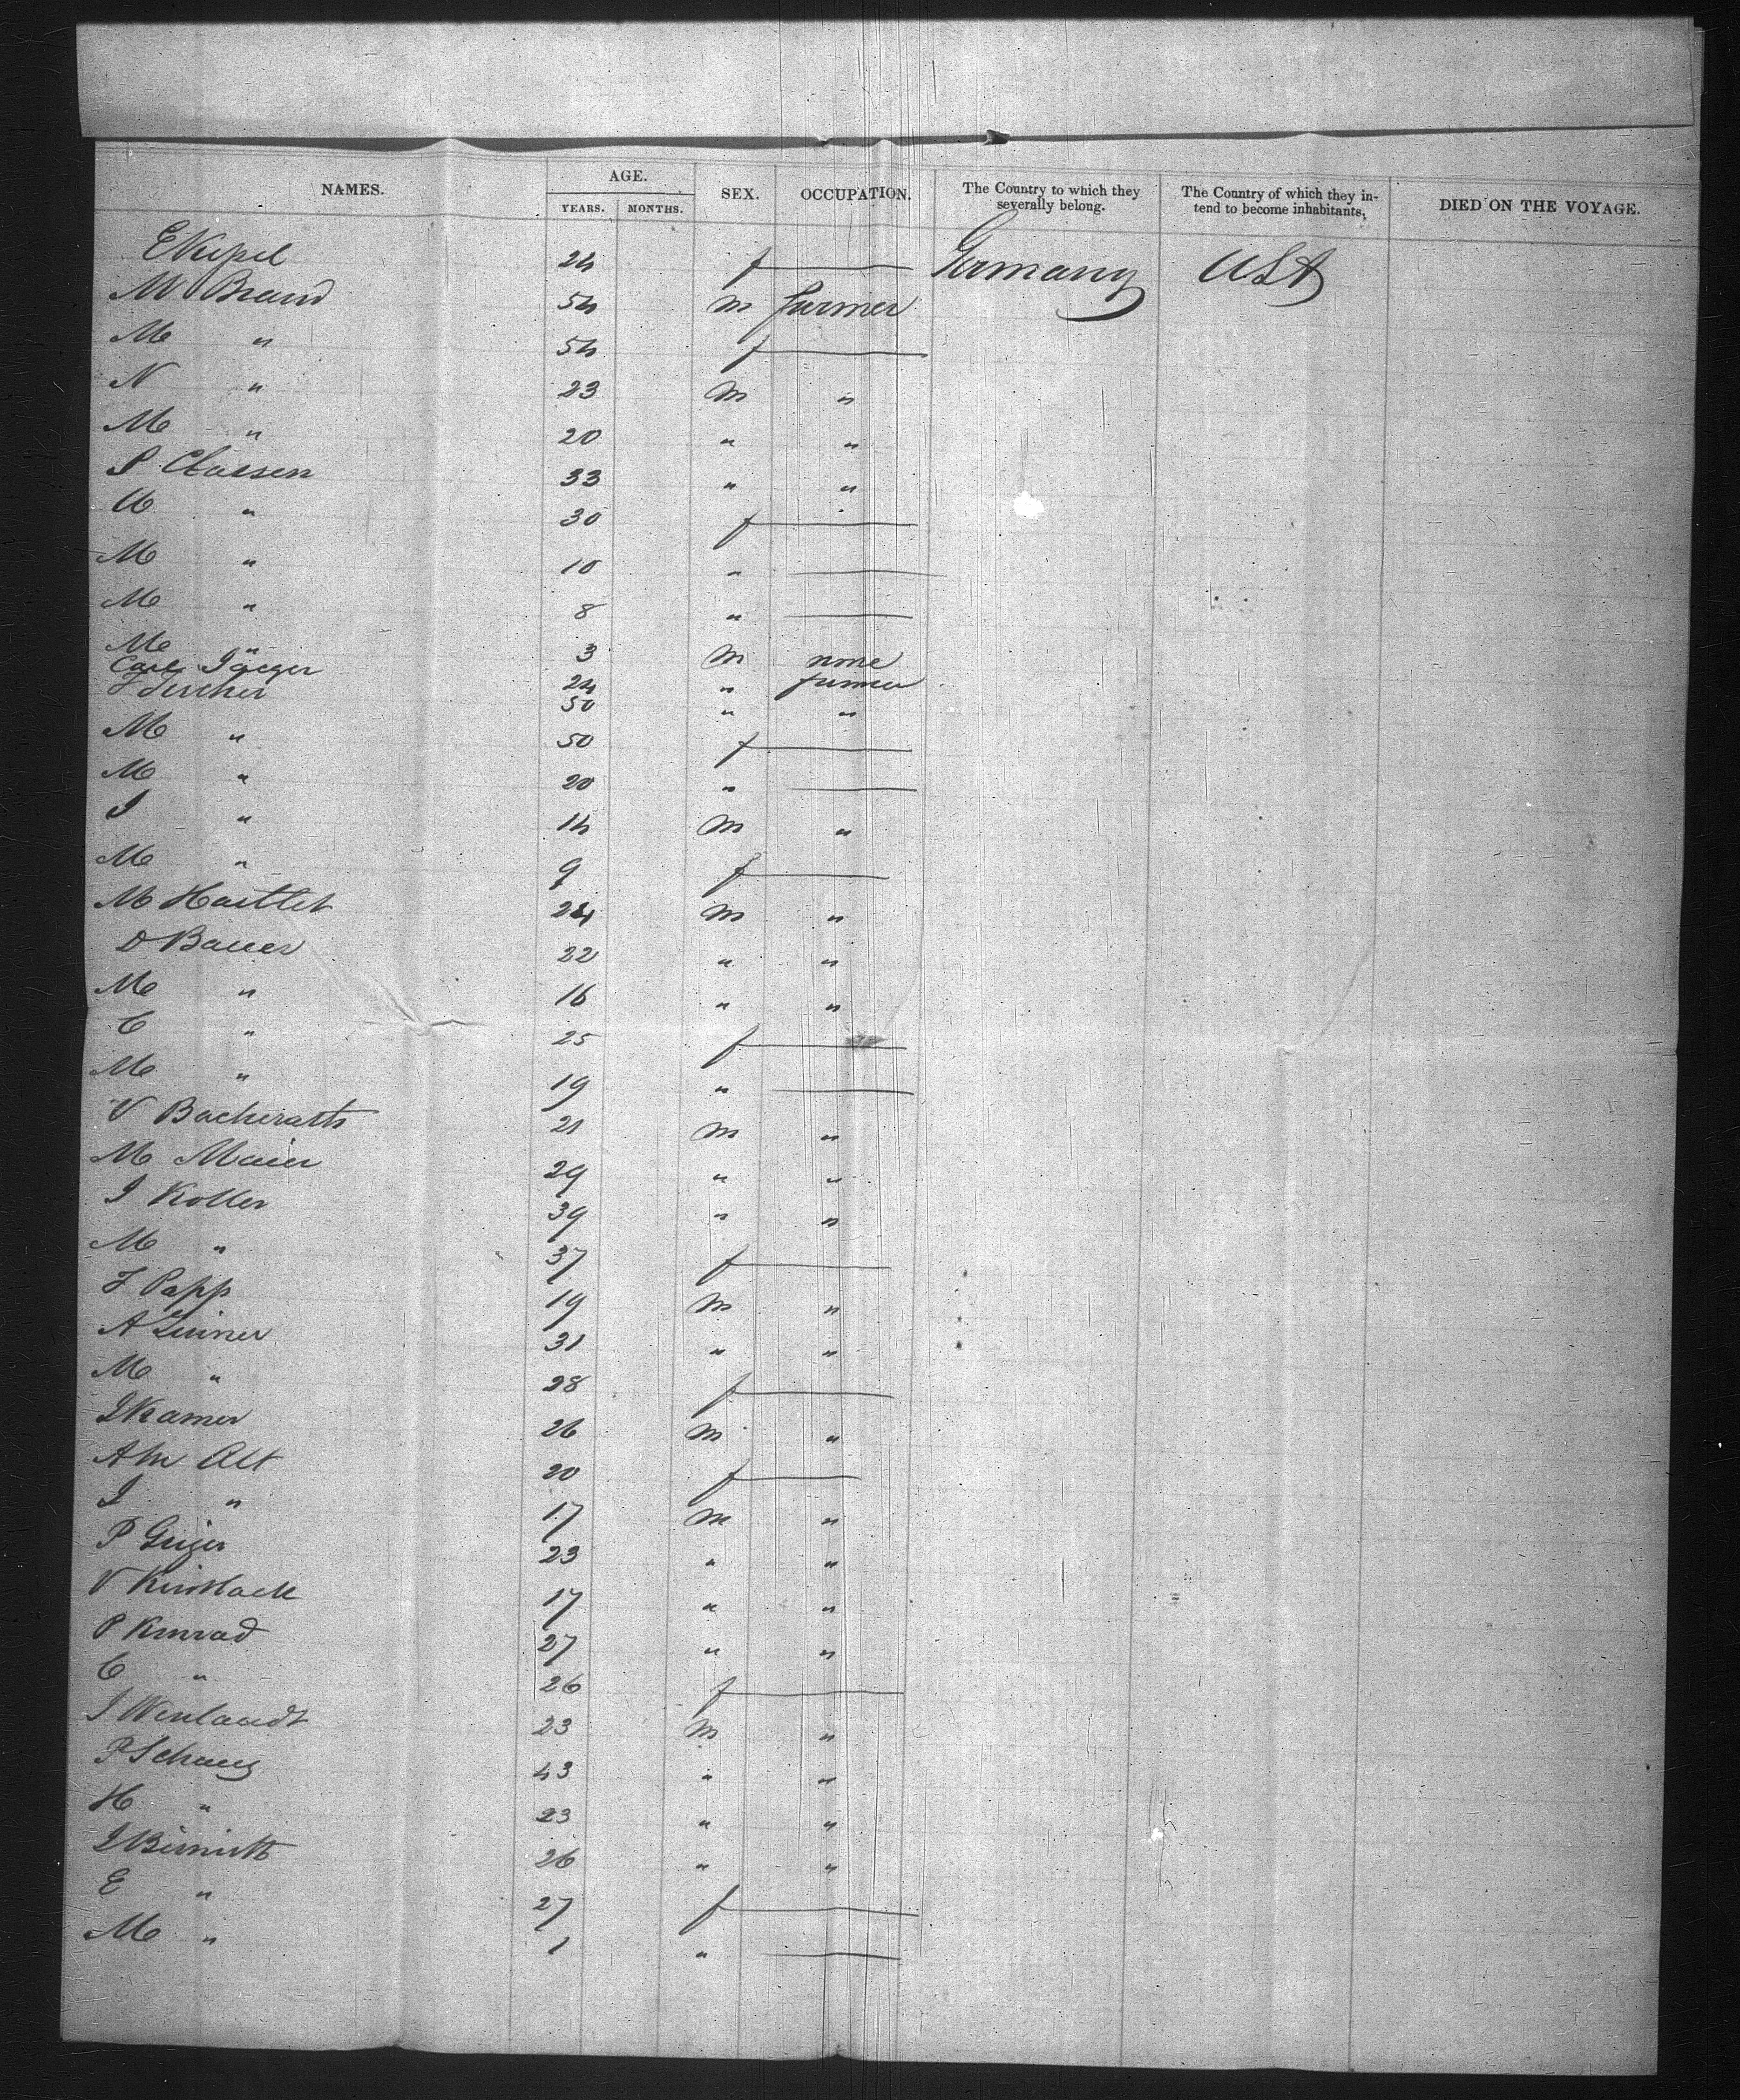 NAMES. AGE. YEARS. MONTHS. SEX. OCCUPATION. The Country to which they severally belong. The Country of which they intend to become inhabitants. DIED ON THE VOYAGE.
E Kepel 24 f — Germany USA
M Brand 54 m farmer
M " 54 f —
N " 23 m "
M " 20 " "
P Classen 33 " "
A " 30 f —
M " 10 " —
M " 8 " —
M " 3 m none
Carl Jaeger 24 " farmer
F Fischer 50 " "
M " 50 f —
M " 20 " —
J " 14 m "
M " 9 f —
M Hartlet 24 m "
D Bauer 22 " "
M " 16 " "
C " 25 f —
M " 19 " —
V Bacherath 21 m "
M Maier 29 " "
J Koller 39 " "
M " 37 f —
F Papp 19 m "
A 31 " "
M " 28 f —
J Kramer 26 m "
A M Alt 20 f —
J " 17 m "
P Geiger 23 " "
V 17 " "
P Konrad 27 " "
C " 26 f —
J 23 m "
P Schaus 43 " "
H " 23 " "
J 26 " "
E " 27 f —
M " 1 " —